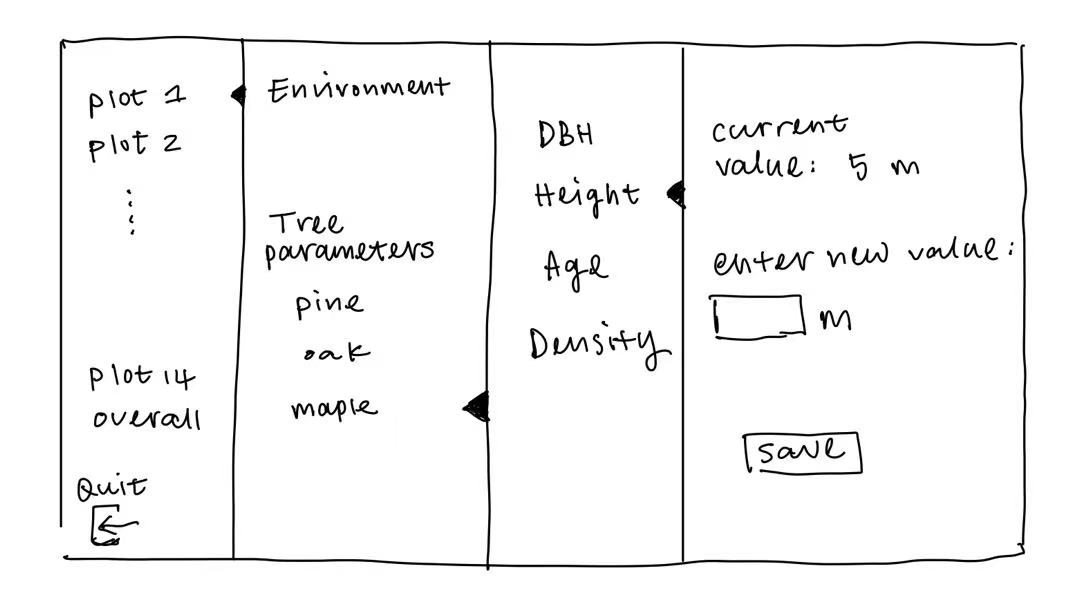 plot 1
plot 2
plot 14
overall
Quit
Environment
Tree
parameters
pine
oak
maple
DBH
Height
Age
Density
current
value: 5 m
enter new value:
m
save